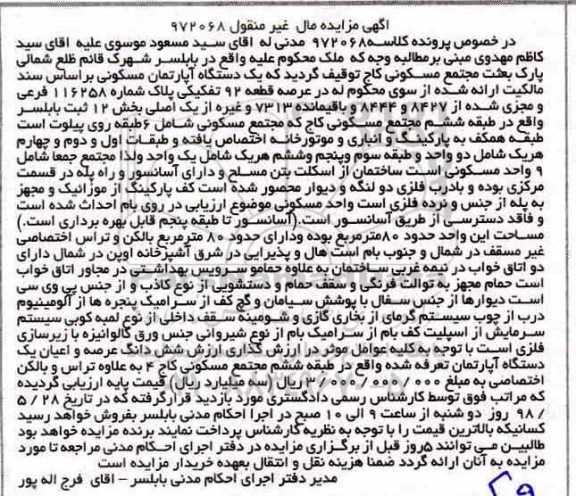 آگهی مزایده مال غیر منقول ۹۷۲۰۶۸
در خصوص پرونده کلاسه ۹۷۲۰۶۸ مدنی له آقای سید مسعود موسوی علیه آقای سید
کاظم مهدوی مبنی بر مطالبه وجه که ملک محکوم علیه واقع در بابلسر شهرک قائم ظلع شمالی
پارک بعثت مجتمع مسکونی کاج توقیف گردید که یک دستگاه آپارتمان مسکونی بر اساس سند
مالکیت ارائه شده از سوی محکوم له در عرصه قطعه ۹۲ تفکیکی پلاک شماره ۱۱۶۲۵۸ فرعی
و مجزی شده از ۸۴۲۷ و ۸۴۴۴ و باقیمانده ۷۳۱۳ و غیره از یک اصلی بخش ۱۲ ثبت بابلسر
واقع در طبقه ششم مجتمع مسکونی کاج که مجتمع مسکونی شامل ۶طبقه روی پیلوت است
طبقه همکف به پارکینگ و انباری و موتورخانه اختصاص یافته و طبقات اول و دوم و چهارم
هریک شامل دو واحد و طبقه سوم وپنجم وششم هریک شامل یک واحد ولذا مجتمع جمعا شامل
۹ واحد مسکونی است ساختمان از اسکلت بتن مسلح و دارای آسانسور و راه پله در قسمت
مرکزی بوده و بادرب فلزی دو لنگه و دیوار محصور شده است کف پارکینگ از موزائیک و مجهز
به پله از جنس و نرده فلزی است واحد مسکونی موضوع ارزیابی در روی بام احداث شده است
و فاقد دسترسی از طریق آسانسور است.(آسانسور تا طبقه پنجم قابل بهره برداری است.)
مساحت این واحد حدود ۸۰مترمربع بوده ودارای حدود ۸۰ مترمربع بالکن و تراس اختصاصی
غیر مسقف در شمال و جنوب بام است هال و پذیرایی در شرق آشپزخانه اوپن در شمال دارای
دو اتاق خواب در نیمه غربی ساختمان به علاوه حمامو سرویس بهداشتی در مجاور اتاق خواب
است حمام مجهز به توالت فرنگی و سقف حمام و دستشویی از نوع کاذب و از جنس پی وی سی
است دیوارها از جنس سفال با پوشش سیمان و گچ کف از سرامیک پنجره ها از آلومینیوم
درب از چوب سیستم گرمای از بخاری گازی و شومینه سقف داخلی از نوع لمبه کوبی سیستم
سرمایش از اسپلیت کف بام از سرامیک بام از نوع شیروانی جنس ورق گالوانیزه با زیرسازی
فلزی است با توجه به کلیه عوامل موثر در ارزش گذاری ارزش شش دانگ عرصه و اعیان یک
دستگاه آپارتمان تعرفه شده واقع در طبقه ششم مجتمع مسکونی کاج ۴ به علاوه تراس و بالکن
اختصاصی به مبلغ ۳/۰۰۰/۰۰۰/۰۰۰ریال (سه میلیارد ریال) قیمت پایه ارزیابی گردیده
که مراتب فوق توسط کارشناس رسمی دادگستری مورد بازدید قرارگرفته که در تاریخ ۲۸ / ۵
/ ۹۸ روز دو شنبه از ساعت ۹ الی ۱۰ صبح در اجرا احکام مدنی بابلسر بفروش خواهد رسید
کسانیکه بالاترین قیمت را با توجه به نظریه کارشناس پرداخت نمایند برنده مزایده خواهد بود
طالبین می توانند ۵روز قبل از برگزاری مزایده در دفتر اجرای احکام مدنی مراجعه تا مورد
مزایده به آنان ارائه گردد ضمنا هزینه نقل و انتقال بعهده خریدار مزایده است
مدیر دفتر اجرای احکام مدنی بابلسر - آقای فرج اله پور